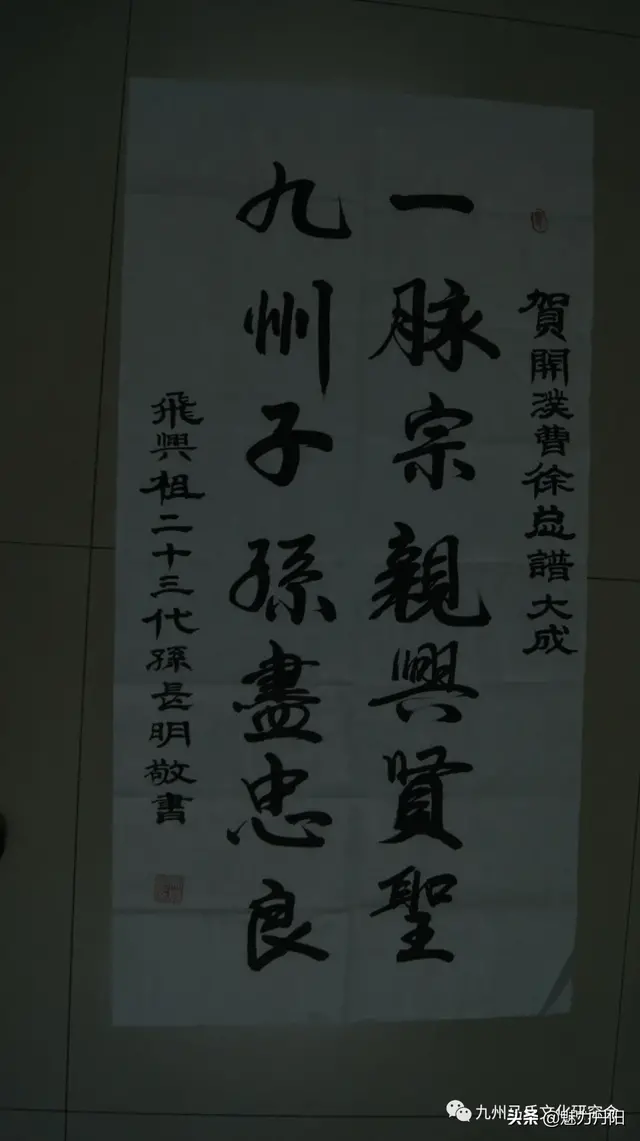 賀開濮曹徐总譜大成
一脉宗親興賢聖
九州子孫盡忠良
飛興祖二十三代孫長明敬書
九州马氏文化研究会
头条@魅力丹阳